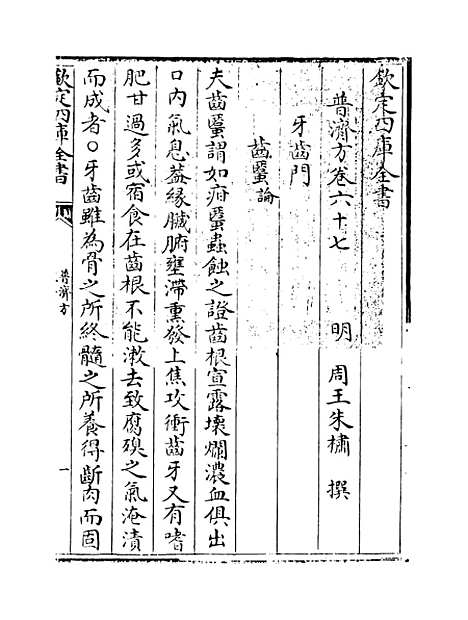 欽定四庫全書
普濟方卷六十七
明 周王朱橚 撰
牙齒門
齒䘌論
夫齒䘌謂如疳䘌蟲蝕之證齒根宣露壞爛濃血俱出
口内氣息蓋縁臟腑壅滯熏發上焦攻衝齒牙又有嗜
肥甘過多或宿食在齒根不能漱去致腐䠟之氣淹漬
而成者○牙齒雖為骨之所終髓之所養得齗肉而固
欽定四庫全書
普濟方
一